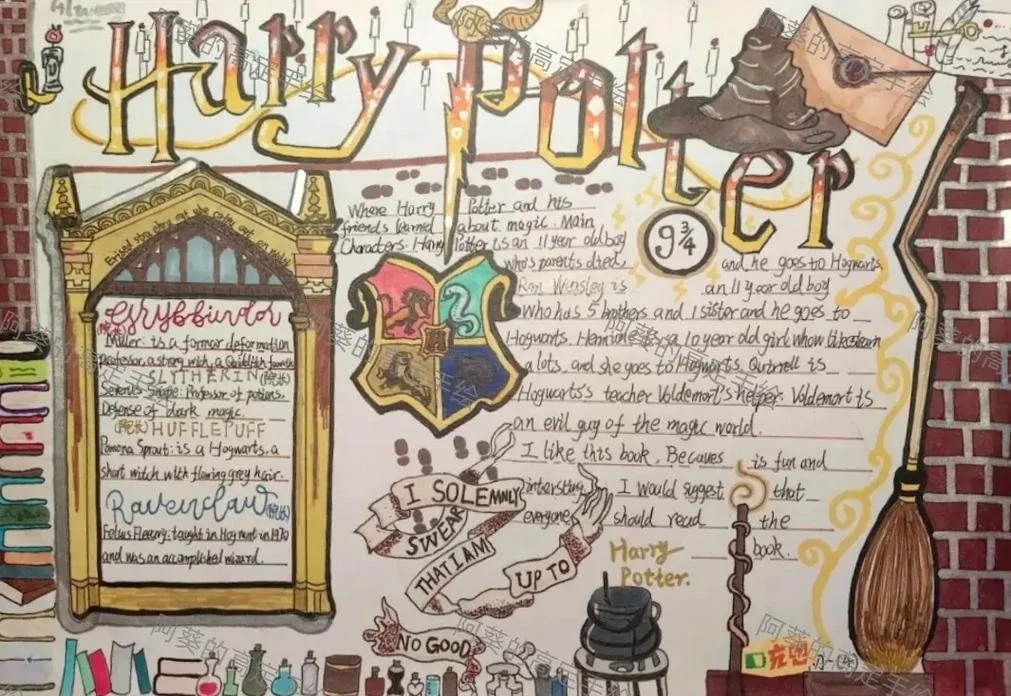 Harry Potter
Erised stra ehru oyt ube cafru oyt on wohsi
Where Harry Potter and his
friends learned about magic. Main
Characters. Harry Potter is an 11 year old boy
9 3/4
who's parents died, and he goes to Hogwarts.
Ron Winsley is an 11 year old boy
who has 5 brothers and 1 sister and he goes to
Hogwarts. Hermione is a 10 year old girl whow likes learn
a lots. and she goes to Hogwarts. Quirrell is
Hogwarts's teacher Voldemort's helper. Voldemort is
an evil guy of the magic world.
I like this book. Becaues is fun and
interesting. I would suggest that
everyone should read the
Harry Potter. book.
Gryffindor
(院长)
Miller: is a formar deformation
professor, a strong witch, a Quidditch
SLYTHERIN (院长)
Severus Snape: Professor of potions,
Defense of dark magic.
(院长) HUFFLEPUFF
Pomona Sprout: is a Hogwarts, a
short witch with flowing grey hair.
Ravenclaw (院长)
taught in Hogwart in 1970
and was an accomplished wizard.
I SOLEMNLY
SWEAR
THAT I AM
UP TO
NO GOOD
阿葵的高定手绘